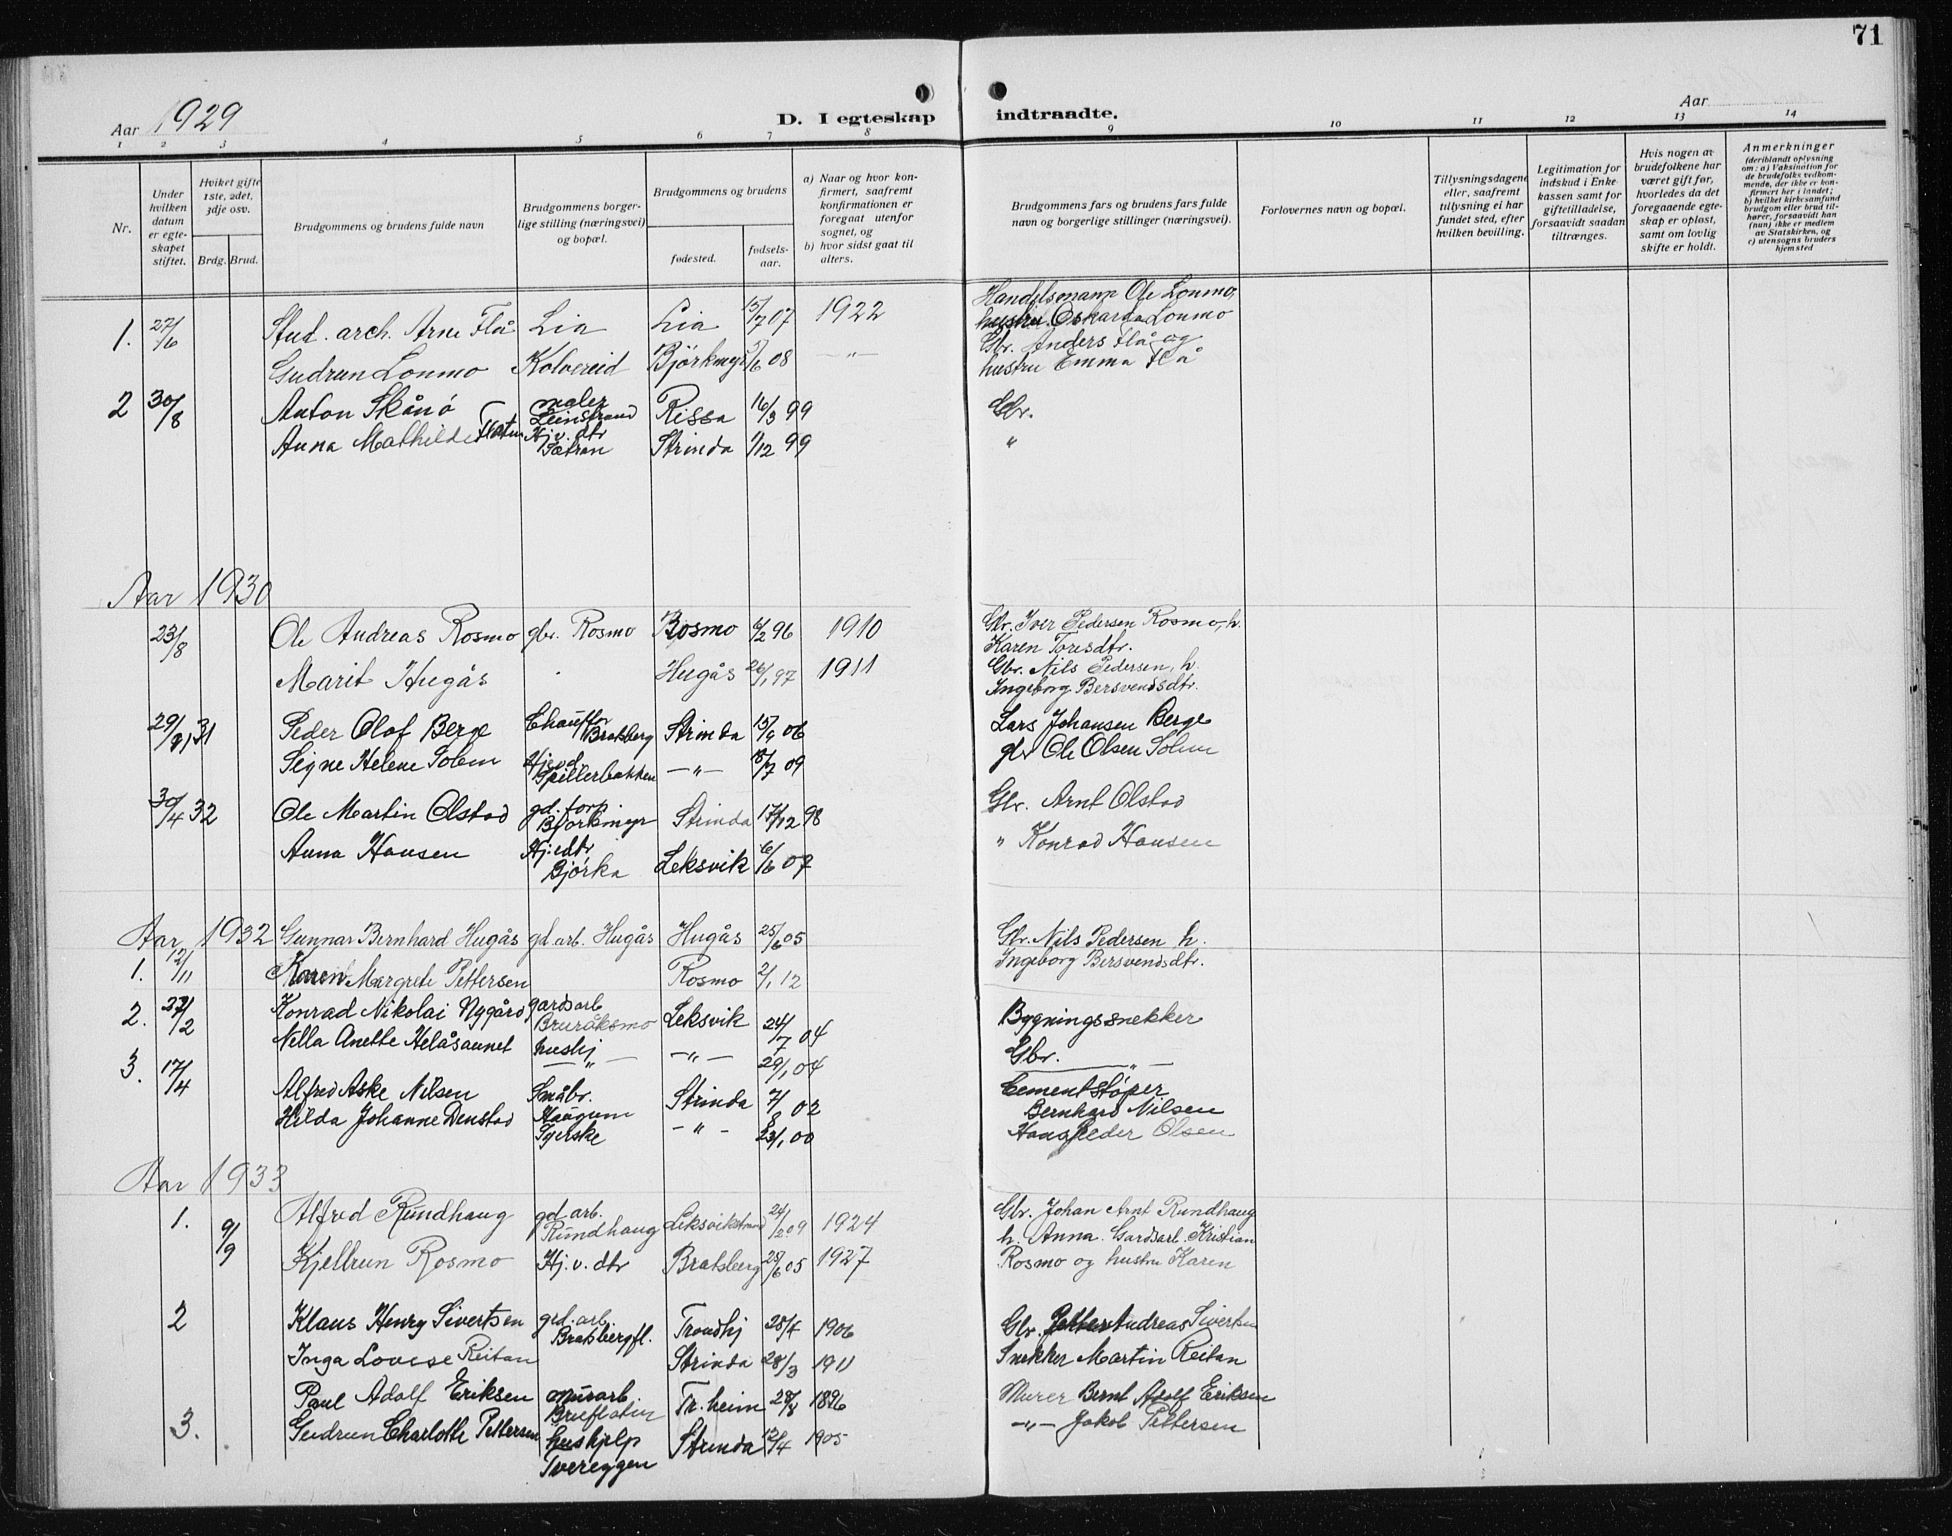 71
Aar 1929
D. I egteskap indtraadte.
Aar
1 2 3 4 5 6 7 8 9 10 11 12 13 14
Nr.
Under hvilken datum er egteskapet stiftet.
Hviket gifte 1ste, 2det, 3dje osv.
Brdg. Brud.
Brudgommens og brudens fulde navn
Brudgommens borgerlige stilling (næringsvei) og bopæl.
Brudgommens og brudens
fødested.
fødselsaar.
a) Naar og hvor konfirmert, saafremt konfirmationen er foregaat utenfor sognet, og
b) hvor sidst gaat til alters.
Brudgommens fars og brudens fars fulde navn og borgerlige stillinger (næringsvei).
Forlovernes navn og bopæl.
Tillysningsdagene eller, saafremt tillysning ei har fundet sted, efter hvilken bevilling.
Legitimation for indskud i Enkekassen samt for giftetilladelse, forsaavidt saadan tiltrænges.
Hvis nogen av brudefolkene har været gift før, hvorledes da det foregaaende egteskap er opløst, samt om lovlig skifte er holdt.
Anmerkninger (deriblandt oplysning om: a) Vaksination for de brudefolks vedkommende, der ikke er konfirmert her i landet; b) hvilket kirkesamfund brudgom eller brud tilhører, forsaavidt han (hun) ikke er medlem av Statskirken, og c) utensogns bruders hjemsted
1. 27/6 Stud. arch. Arne Flå Lia Lia 15/7 07 1922 Handelsmann Ole Lonmo, hustru Oskarda Lonmo
Gudrun Lonmo Kolvereid Björkmyr /6 08 -"- Gbr. Anders Flå og hustru Emma Flå
2 30/8 Anton Skånø maler Leinstrand Rissa 16/3 99 Gbr.
Anna Mathilde Flotun Hj.v. dtr Sætran Strinda 1/12 99 "
Aar 1930
23/8 Ole Andreas Rosmo gbr. Rosmo Rosmo 6/2 96 1910 Gbr. Iver Pedersen Rosmo, h. Karen Toresdtr.
Marit Hugås Hugås 26/1 97 1911 Gbr. Nils Pedersen, h. Ingeborg Bersvendsdtr.
29/8, 31 Peder Olaf Berge Chauffør Bratsberg Strinda 15/9 06 Lars Johansen Berge
Signe Helene Solem Hjevd Spillerbakken -"- 18/7 09 gbr Ole Olsen Solem
30/4 32 Ole Martin Olstad gd. forp. Bjørkmyr Strinda 17/12 98 Gbr. Arnt Olstad
Anna Hansen Hj.v.dtr Bjørka Leksvik 6/6 07 " Konrad Hansen
Aar 1932 Gunnar Bernhard Hugås gd. arb. Hugås Hugås 25/6 05 Gbr. Nils Pedersen h.
1. 12/11 Karen Margrete Pettersen Rosmo 2/1 12 Ingeborg Bersvendsdtr.
2. 27/2 Konrad Nikolai Nygård gardsarb Bruråksmo Leksvik 24/7 04 Bygningssnekker
Nella Anette Helåsaunet hushj -"- -"- 29/1 04 Gbr. -"-
3. 17/4 Alfred Aske Nilsen Småbr. Haugum Strinda 7/8 02 Cementstøper Bernhard Nilsen
Hilda Johanne Denstad Tjerske -"- 23/1 00 Hans Peder Olsen
Aar 1933
1. 9/9 Alfred Rundhaug gd. arb. Rundhaug Leksvikstrand 24/2 09 1924 Gbr. Johan Arnt Rundhaug h. Anna. Gardsarb. Kristian
Kjellrun Rosmo Hj. v. dtr Bratsberg 25/6 05 1927 Rosmo og hustru Karen
2 Klaus Henry Sivertsen grd. arb. Bratsbergfl. Trondhj 28/4 1906 Gbr. Petter Andreas Sivertsen
Inga Lovise Reitan Strinda 28/3 1911 Snekker Martin Reitan
3. Paul Adolf Eriksen murarb. Bruflotin Tr. heim 28/8 1896 Murer Bernt Adolf Eriksen
Gudrun Charlotte Pettersen hushjelp Tvereggen Strinda 12/4 1905 -"- Jakob Pettersen